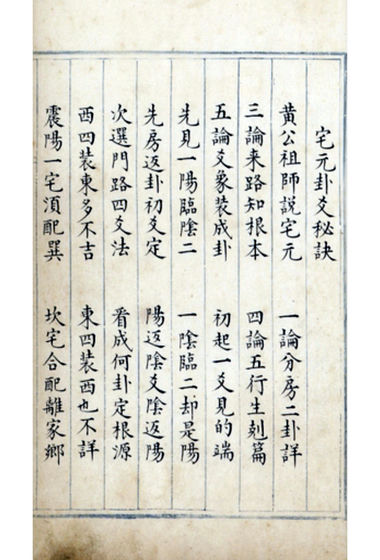 宅元卦爻秘訣
黃公祖師說宅元　一論分房二卦詳
三論来路知根本　四論五行生剋篇
五論爻象裝成卦　初起一爻見的端
先見一陽臨陰二　一陰臨二却是陽
先房返卦初爻定　陽返陰爻陰返陽
次選門路四爻法　看成何卦定根源
西四裝東多不吉　東四裝西也不詳
震陽一宅湏配巽　坎宅合配離家鄉